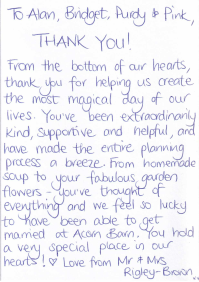 To Alan, Bridget, Purdy & Pink,
THANK YOU!
From the bottom of our hearts,
thank you for helping us create
the most magical day of our
lives. You've been extraordinarily
kind, supportive and helpful, and
have made the entire planning
process a breeze. From homemade
soup to your fabulous garden
flowers - you've thought of
everything and we feel so lucky
to have been able to get
married at Acorn Barn. You hold
a very special place in our
hearts! ♡ Love from Mr & Mrs
Rigley-Brown